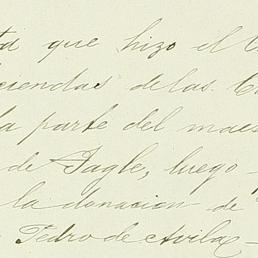 que hizo el
de las
la parte del maes
de Tagle, luego
la donacion de
Pedro de Avila